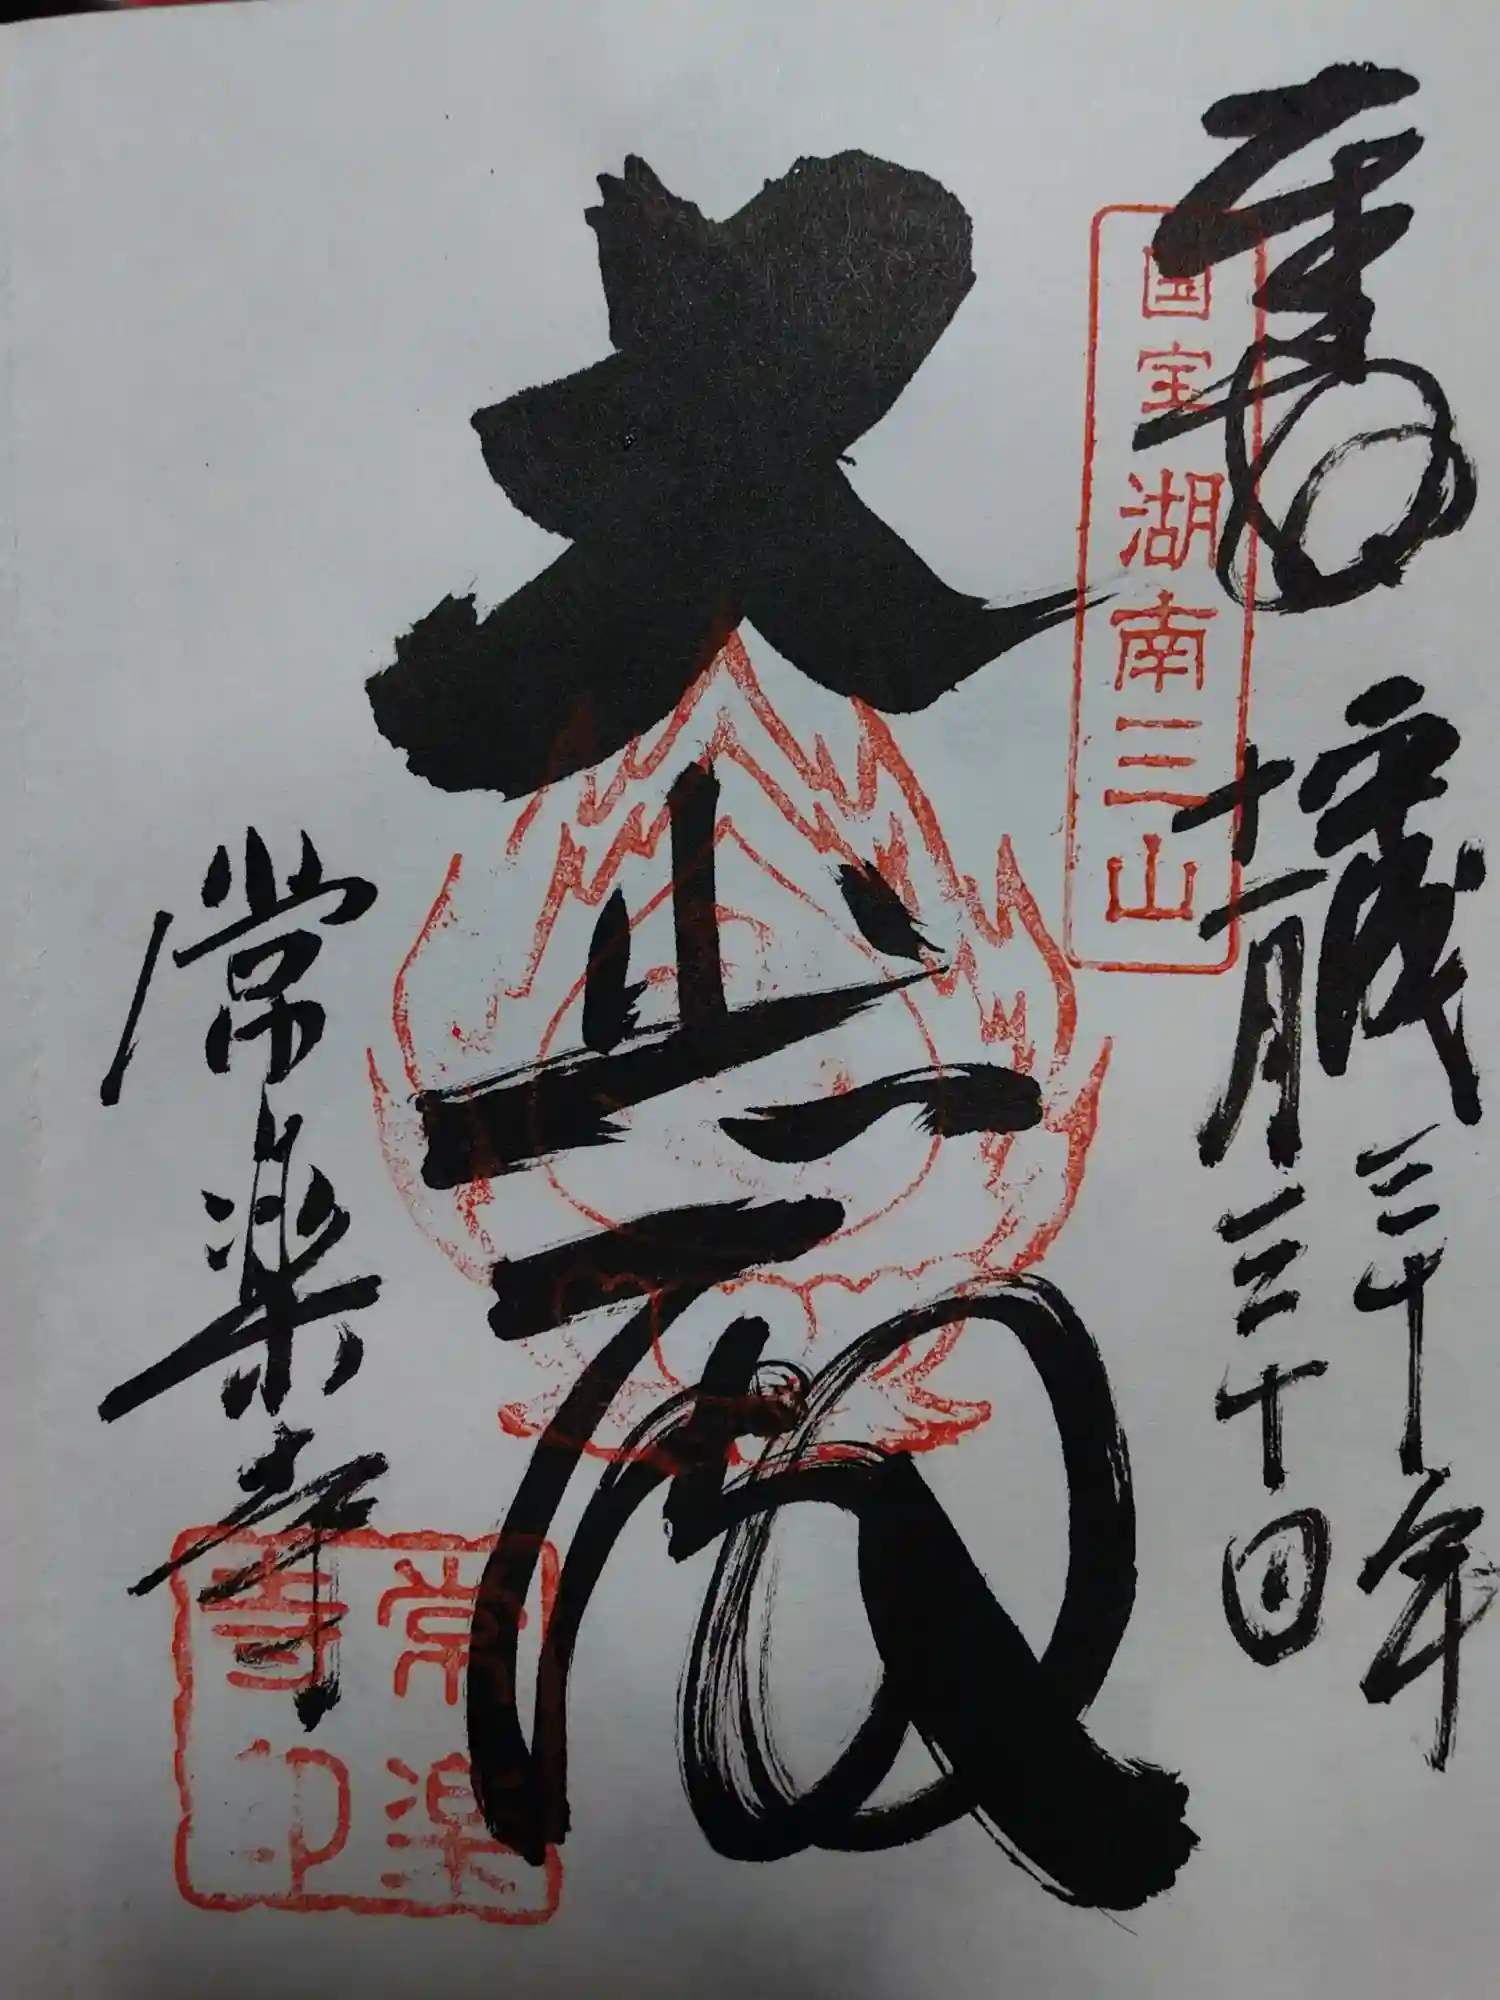 奉拝
国宝湖南三山
平成三十年
十一月三十日
大悲殿
常楽寺
常楽寺印